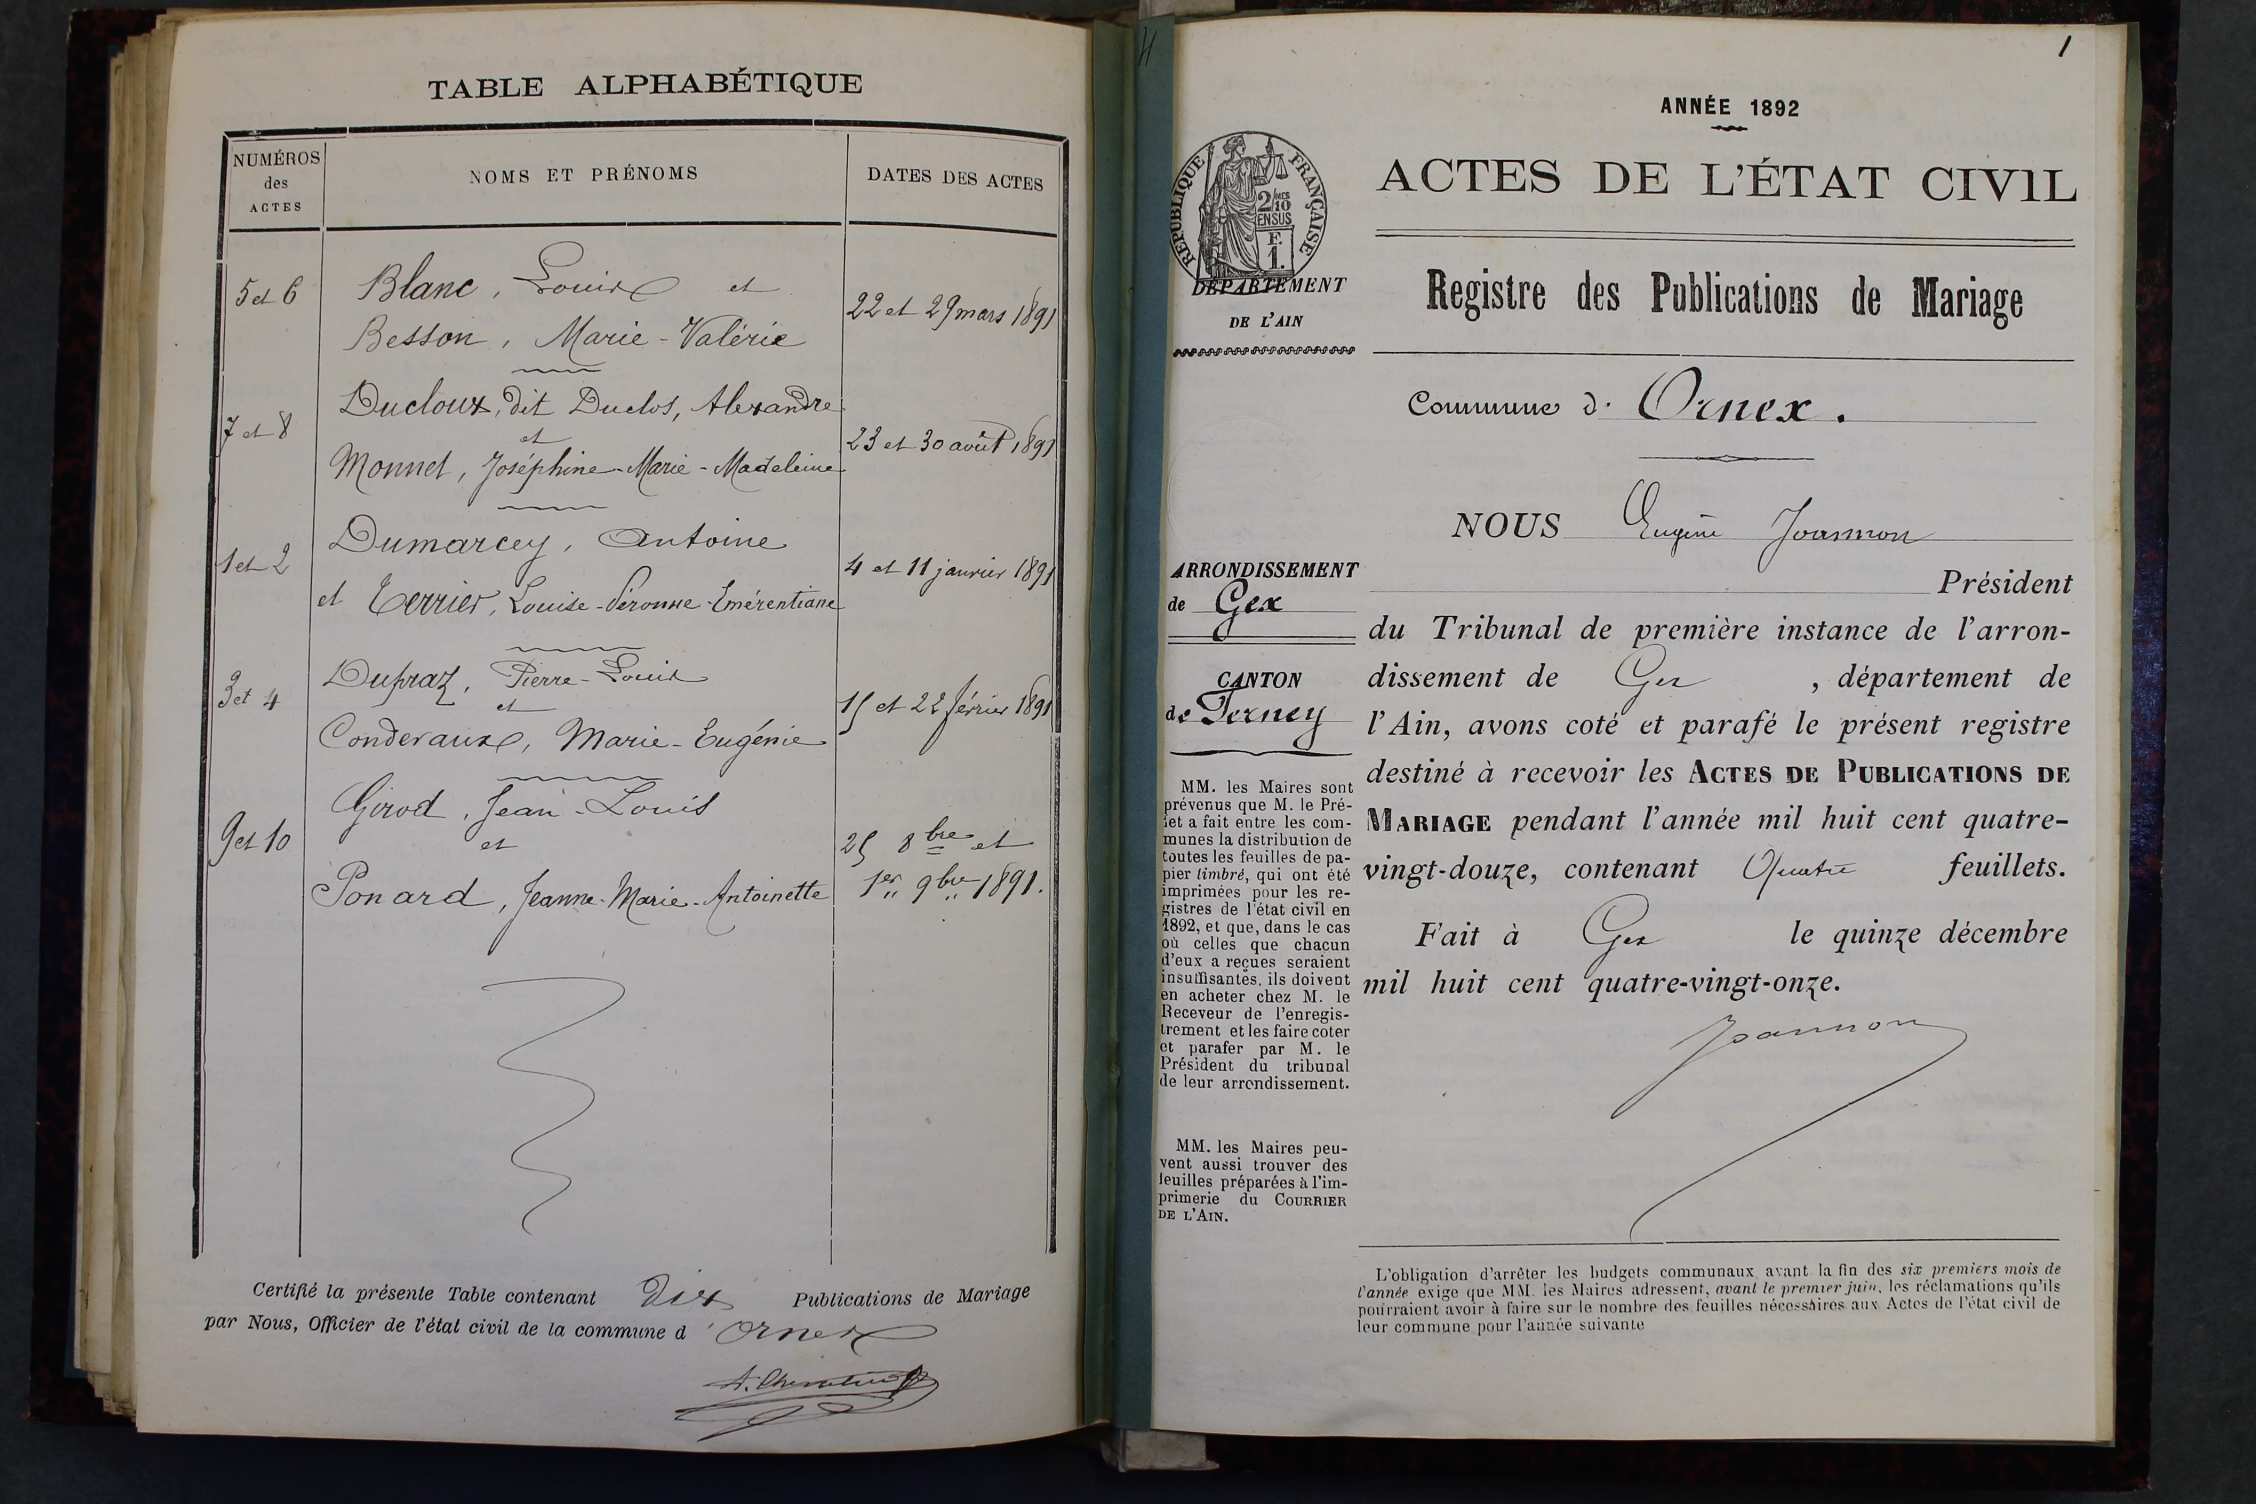 TABLE ALPHABÉTIQUE
NUMÉROS
des
ACTES
NOMS ET PRÉNOMS
DATES DES ACTES
5 et 6
Blanc, Louis et
Besson, Marie-Valérie
22 et 29 mars 1891
7 et 8
Ducloux, dit Duclos, Alexandre
et
Monnet, Joséphine-Marie-Madeleine
23 et 30 août 1891
1 et 2
Dumarcey, Antoine
et Terrier, Louise-Péronne-Emérentiane
4 et 11 janvier 1891
3 et 4
Dupraz, Pierre-Louis
et
Condevaux, Marie-Eugénie
15 et 22 février 1891
9 et 10
Girod, Jean-Louis
et
Ponard, Jeanne-Marie-Antoinette
25 8bre et
1er 9bre 1891.
Certifié la présente Table contenant dix Publications de Mariage
par Nous, Officier de l'état civil de la commune d'Ornex
1
ANNÉE 1892
RÉPUBLIQUE FRANÇAISE
2/10
EN SUS
F.
1.
DÉPARTEMENT
DE L'AIN
ACTES DE L'ÉTAT CIVIL
Registre des Publications de Mariage
Commune d'Ornex.
NOUS Eugène Joannon
Président
du Tribunal de première instance de l'arron-
dissement de Gex, département de
l'Ain, avons coté et parafé le présent registre
destiné à recevoir les ACTES DE PUBLICATIONS DE
MARIAGE pendant l'année mil huit cent quatre-
vingt-douze, contenant Quatre feuillets.
Fait à Gex le quinze décembre
mil huit cent quatre-vingt-onze.
Joannon
ARRONDISSEMENT
de Gex
CANTON
de Ferney
MM. les Maires sont
prévenus que M. le Pré-
fet a fait entre les com-
munes la distribution de
toutes les feuilles de pa-
pier timbré, qui ont été
imprimées pour les re-
gistres de l'état civil en
1892, et que, dans le cas
où celles que chacun
d'eux a reçues seraient
insuffisantes, ils doivent
en acheter chez M. le
Receveur de l'enregis-
trement et les faire coter
et parafer par M. le
Président du tribunal
de leur arrondissement.
MM. les Maires peu-
vent aussi trouver des
feuilles préparées à l'im-
primerie du COURRIER
DE L'AIN.
L'obligation d'arrêter les budgets communaux avant la fin des six premiers mois de
l'année exige que MM. les Maires adressent, avant le premier juin, les réclamations qu'ils
pourraient avoir à faire sur le nombre des feuilles nécessaires aux Actes de l'état civil de
leur commune pour l'année suivante